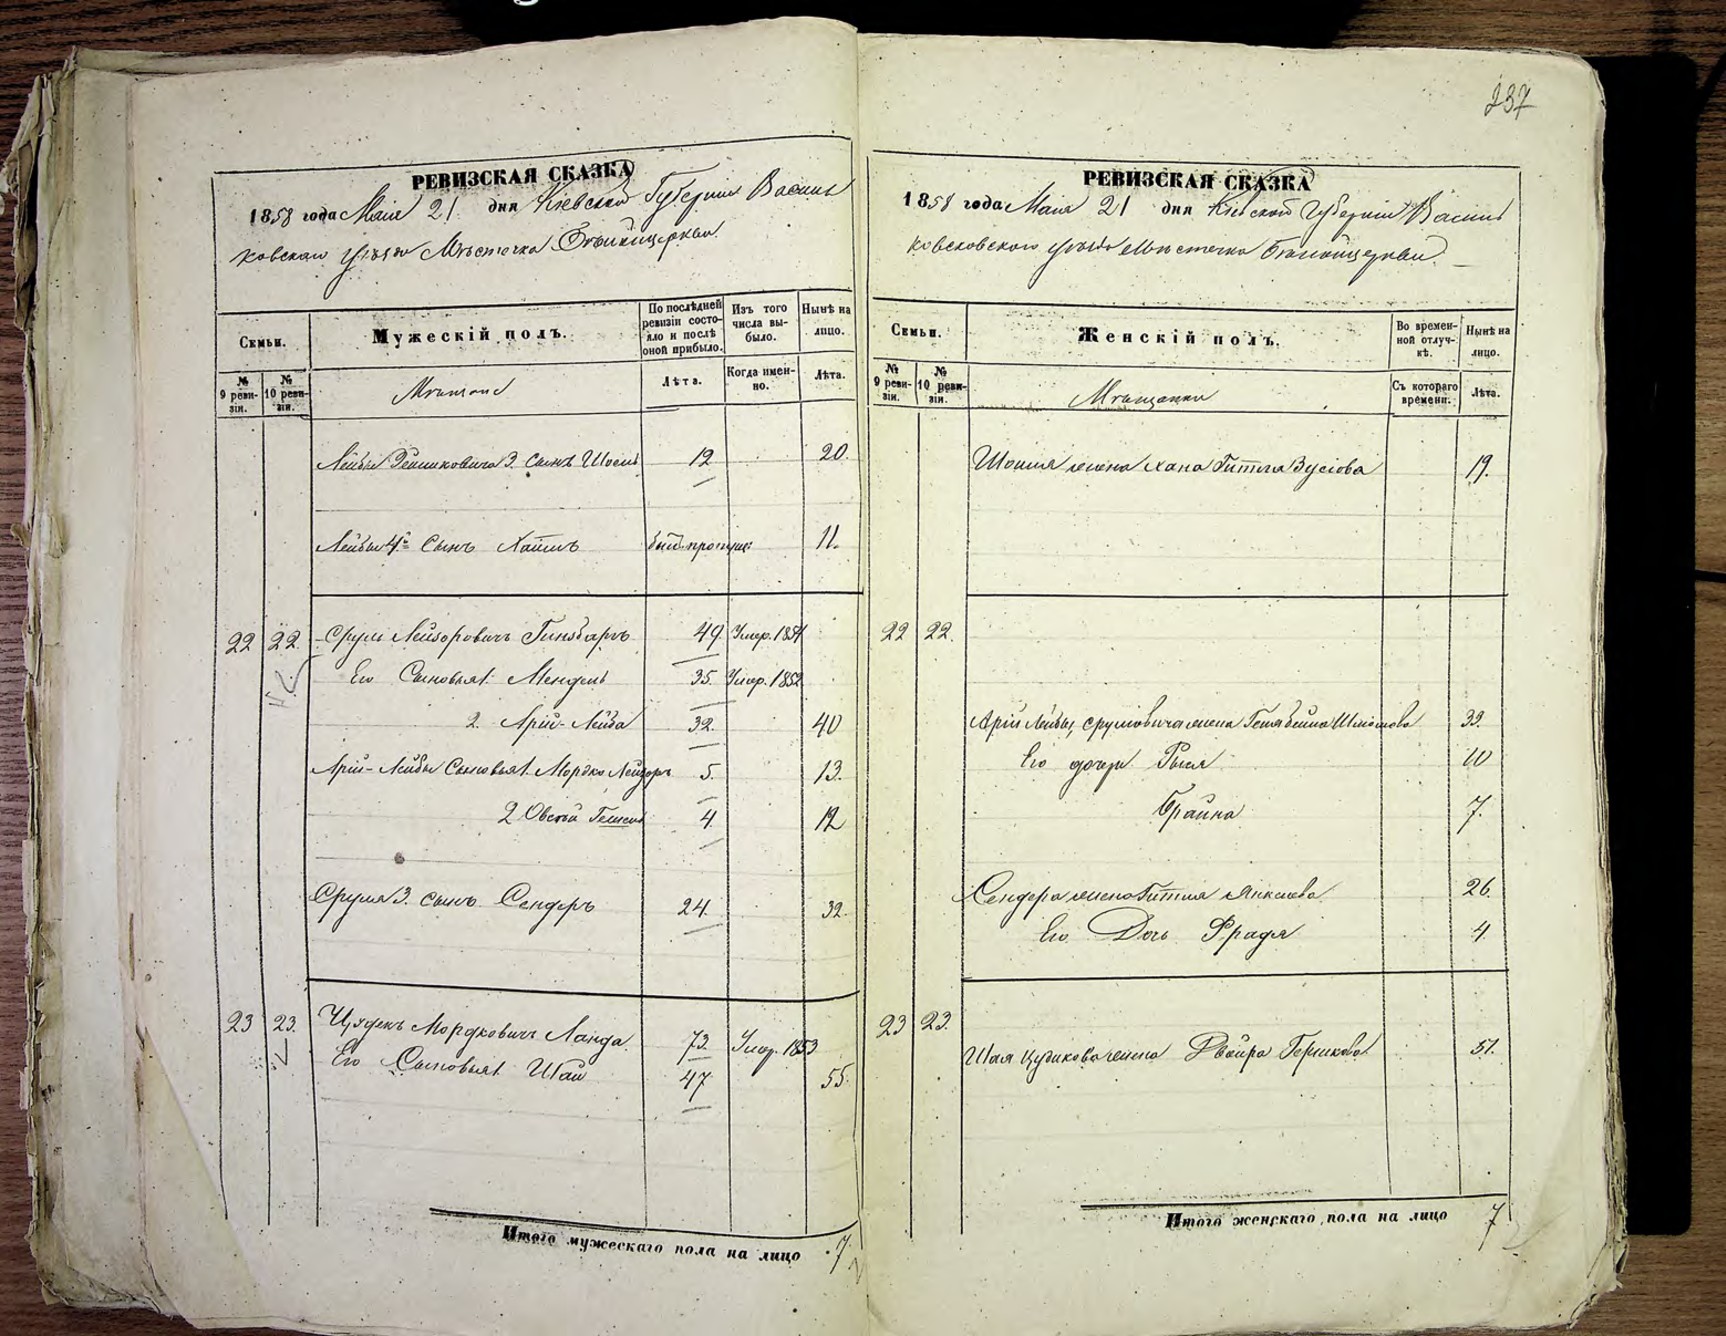 237
РЕВИЗСКАЯ СКАЗКА
1858 года Маія 21 дня Кіевской Губерніи Василь
ковскаго уѣзда Мѣстечка Бѣлойцеркви
Семьи.
Мужескій полъ.
По послѣдней ревизіи состояло и послѣ оной прибыло.
Изъ того числа выбыло.
Нынѣ на лицо.
№ 9 ревизіи.
№ 10 ревизіи.
Мѣщане
Лѣта.
Когда именно.
Лѣта.
Лейбы 3. сынъ 12 20
Лейбы 4й Сынъ Хаимъ 11.
22 22. Срулъ Лейзоровичъ Гинзбаргъ 49 Умер. 1854
Его Сыновья 1. Мендель 35. Умер. 1852
2. Арій-Лейба 32. 40
Арій-Лейбы Сыновья 1. Мордко Лейзоръ 5. 13.
2 Овсѣй 4 12
Срулия 3. сынъ Сендеръ 24. 32.
23 23. Мордковичъ Ланда 73 Умер. 1853
Его Сыновья 1. Шая 47 55.
Итого мужескаго пола на лицо 7
РЕВИЗСКАЯ СКАЗКА
1858 года Маія 21 дня Кіевской Губерніи Василь
уѣзда Мѣстечка Бѣлойцеркви
Семьи.
Женскій полъ.
Во временной отлучкѣ.
Нынѣ на лицо.
№ 9 ревизіи.
№ 10 ревизіи.
Мѣщанки
Съ котораго времени.
Лѣта.
жена Хана Гитля 19.
22 22.
Арій Лейбы, Сруловича жена 39.
Его дочери Рыся 10
Брайна 7.
Сендера жена Гитля Янкелева 26
Его Дочь Фрадя 4
23 23.
Шая жена Двойра Гершкова 51.
Итого женскаго пола на лицо 7